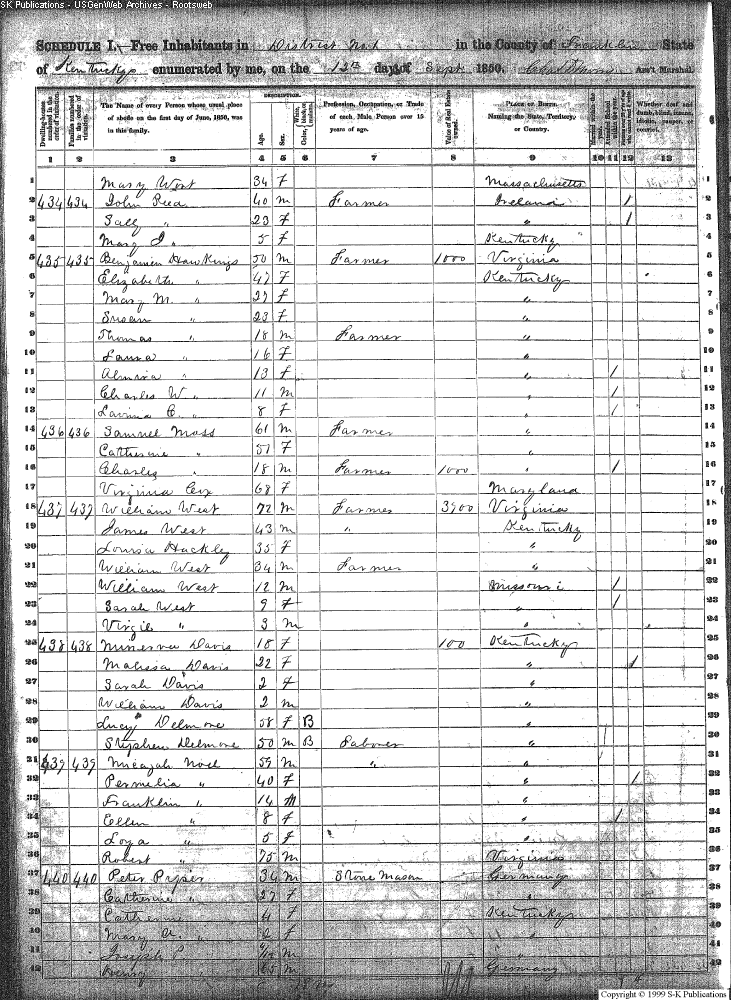 SK Publications - USGenWeb Archives - Rootsweb
SCHEDULE I.—Free Inhabitants in District No 1 in the County of Franklin State
of Kentucky enumerated by me, on the 12th day of Sept 1850. Ass't Marshal.
Dwelling-houses numbered in the order of visitation.
Families numbered in the order of visitation.
The Name of every Person whose usual place of abode on the first day of June, 1850, was in this family.
DESCRIPTION.
Age.
Sex.
Color, White, black, or mulatto.
Profession, Occupation, or Trade of each Male Person over 15 years of age.
Value of Real Estate owned.
PLACE OF BIRTH. Naming the State, Territory, or Country.
Whether deaf and dumb, blind, insane, idiotic, pauper, or convict.
1 2 3 4 5 6 7 8 9 10 11 12 13
1 Mary West 34 F Massachusetts 1
2 434 434 John Rea 40 M Farmer Ireland / 2
3 Sally " 23 F " / 3
4 Mary J. " 5 F Kentucky 4
5 435 435 Benjamin Hawkins 50 M Farmer 1000 Virginia 5
6 Elizabeth " 47 F Kentucky 6
7 Mary M. " 27 F " 7
8 Susan " 23 F " 8
9 Thomas " 18 M Farmer " 9
10 Laura " 16 F " 10
11 Almira " 13 F " / 11
12 Charles W " 11 M " / 12
13 Lavina C. " 8 F " / 13
14 436 436 Samuel Moss 61 M Farmer " 14
15 Catherine " 51 F " 15
16 Charles " 18 M Farmer 1000 " / 16
17 Virginia Cox 68 F Maryland 17
18 437 437 William West 72 M Farmer 3900 Virginia 18
19 James West 43 M " Kentucky 19
20 Louisa Hackley 35 F " 20
21 William West 34 M Farmer " 21
22 William West 12 M Missouri / 22
23 Sarah West 9 F " / 23
24 Virgil " 3 M " 24
25 438 438 Minerva Davis 18 F 100 Kentucky 25
26 Malissa Davis 22 F " / 26
27 Sarah Davis 2 F " 27
28 William Davis 2 M " 28
29 Lucy Delmore 58 F B " 29
30 Stephen Delmore 50 M B Laborer " 30
31 439 439 Micajah Noel 59 M " " 31
32 Permelia " 40 F " / 32
33 Franklin " 14 M " 33
34 Ellen " 8 F " / 34
35 Loya " 5 F " 35
36 Robert " 75 M Virginia 36
37 440 440 Peter Pyper 34 M Stone Mason Germany 37
38 Catherine " 27 F " 38
39 Catherine 4 F Kentucky 39
40 Mary A. " 2 F " 40
41 Joseph P. M "
42 Henry 65 M Germany 42
Copyright © 1999 S-K Publications